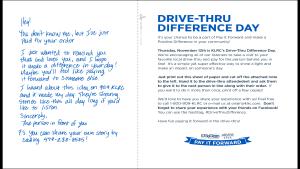 Hey!
You don't know me, but I've just
paid for your order.
I just wanted to remind you
that God loves you, and I hope
it made a difference in your day!
Maybe you'll feel like paying
it forward to someone else.
I heard about this idea on
and it made my day. They're sharing
stories like this all day long if you'd
like to listen.
Sincerely,
The person in front of you
P.S. you can share your own story by
calling
DRIVE-THRU
DIFFERENCE DAY
It's your chance to be a part of Pay it Forward and Make a
Positive Difference in your community!
Thursday, November 12th is KLRC's Drive-Thru Difference Day.
We're encouraging all of our listeners to take a visit to your
favorite local drive-thru and pay for the person behind you in
line! It's a simple yet super effective way to show a light and
make an impact on someone's day.
Just print out this sheet of paper and cut off the attached note
to the left. Hand it to the drive-thru attendant and ask them
to give it to the next person in line along with their order. If
you want to do it more than once, print off a few copies!
We'd love to have you share your experience with us! Feel free
to call 1-800-909-KLRC or e-mail us at onair@klrc.com. Don't
forget to share your experience with your friends on Facebook!
You can use the hashtag, #DriveThruDifference.
Have fun paying it forward in the drive-thru!
PAY IT FORWARD